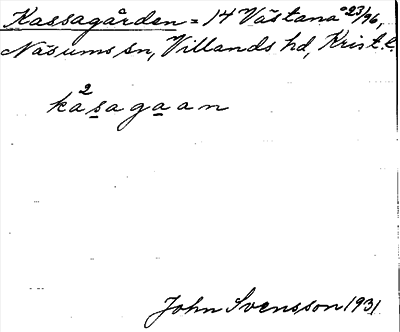 Kassagården = 14 Västanå 23/96,
Näsums sn, Villands hd, Krist. l.
2
kasagaan
John Svensson 1931